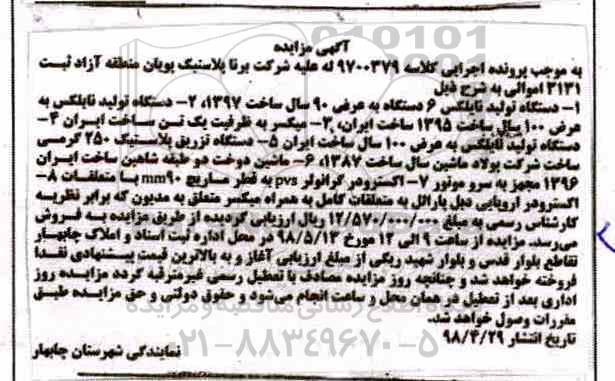 آگهی مزایده
به موجب پرونده اجرایی کلاسه ۹۷۰۰۳۷۹ له علیه شرکت برنا پلاستیک پویان منطقه آزاد ثبت
۳۱۳۱ اموالی به شرح ذیل
۱- دستگاه تولید نایلکس ۶ دستگاه به عرض ۹۰ سال ساخت ۱۳۹۷، ۲- دستگاه تولید نایلکس به
عرض ۱۰۰ سال ساخت ۱۳۹۵ ساخت ایران، ۳- میکسر به ظرفیت یک تن ساخت ایران ۴-
دستگاه تولید نایلکس به عرض ۱۰۰ سال ساخت ایران ۵- دستگاه تزریق پلاستیک ۲۵۰ گرمی
ساخت شرکت پولاد ماشین سال ساخت ۱۳۸۷، ۶- ماشین دوخت دو طبقه شاهین ساخت ایران
۱۳۹۶ مجهز به سرو موتور ۷- اکسترودر گرانولر pvs به قطر مارپیچ mm۹۰ با متعلقات ۸-
اکسترودر اروپایی دبل پارالل به متعلقات کامل به همراه میکسر متعلق به مدیون که برابر نظریه
کارشناس رسمی به مبلغ ۱۲/۵۷۰/۰۰۰/۰۰۰ ریال ارزیابی گردیده از طریق مزایده به فروش
می‌رسد. مزایده از ساعت ۹ الی ۱۲ مورخ ۹۸/۵/۱۳ در محل اداره ثبت اسناد و املاک چابهار
تقاطع بلوار قدس و بلوار شهید ریگی از مبلغ ارزیابی آغاز و به بالاترین قیمت پیشنهادی نقدا
فروخته خواهد شد و چنانچه روز مزایده مصادف با تعطیل رسمی غیرمترقبه گردد مزایده روز
اداری بعد از تعطیل در همان محل و ساعت انجام می‌شود و حقوق دولتی و حق مزایده طبق
مقررات وصول خواهد شد.
تاریخ انتشار ۹۸/۴/۲۹
نمایندگی شهرستان چابهار
۰۲۱-۸۸۳۴۹۶۷۰-۵